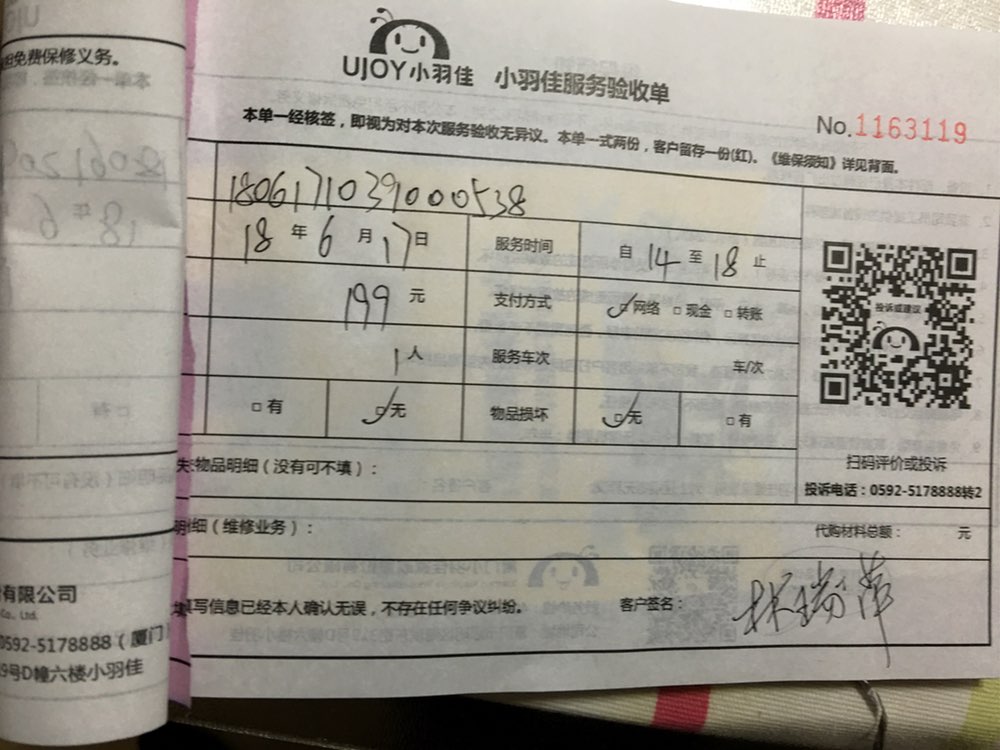 UJOY小羽佳 小羽佳服务验收单
本单一经核签，即视为对本次服务验收无异议。本单一式两份，客户留存一份(红)。《维保须知》详见背面。
No.1163119
18061710391000538
18年6月17日 服务时间 自14至18止
199元 支付方式 网络 现金 转账
1人 服务车次 车/次
有 无 物品损坏 无 有
投诉或建议
扫码评价或投诉
投诉电话：0592-5178888转2
失物品明细（没有可不填）：
明细（维修业务）： 代购材料总额： 元
填写信息已经本人确认无误，不存在任何争议纠纷。 客户签名：
免费保修义务。
有限公司
Co., Ltd.
0592-5178888（厦门
9号D幢六楼小羽佳